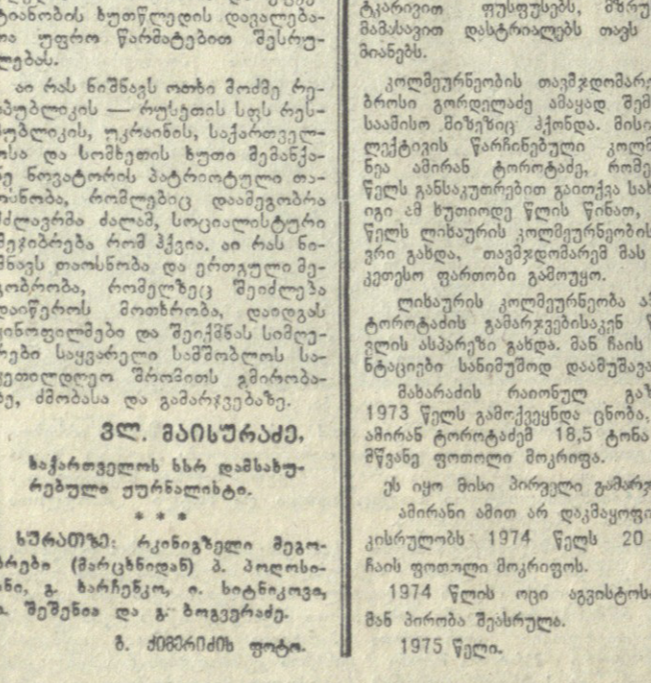 ტიანობის ხუთწლედის დავალება-
თა უფრო წარმატებით შესრუ-
ლებას.
აი რას ნიშნავს ოთხი მოძმე რე-
სპუბლიკის — რუსეთის სფს რეს-
პუბლიკის, უკრაინის, საქართველ-
ოსა და სომხეთის ხუთი მემანქა-
ნე ნოვატორის პატრიოტული თა-
ოსნობა, რომლებიც დაამეგობრა
ძლავრმა ძალამ, სოციალისტური
შეჯიბრება რომ ჰქვია. აი რას ნი-
შნავს თაოსნობა და ერთგული მე-
გობრობა, რომელზეც შეიძლება
დაიწეროს მოთხრობა, დაიდგას
კინოფილმები და შეიქმნას სიმღე-
რები საყვარელი სამშობლოს სა-
კეთილდღეო შრომითს გმირობა-
ზე, ძმობასა და გამარჯვებაზე.
ვლ. მაისურაძე,
საქართველოს სსრ დამსახუ-
რებული ჟურნალისტი.
* * *
სურათზე: რკინიგზელი მეგო-
ბრები (მარცხნიდან) პ. პოღოსი-
ანი, გ. ხარჩენკო, ი. სიტნიკოვი,
ა. შეშენია და გ. ბოგვერაძე.
გ. ქიმერიძის ფოტო.
ტკარივით ფუსფუსებს, მზრუ
მამასავით დასტრიალებს თავს
მიანებს.
კოლმეურნეობის თავმჯდომარე
ბროსი გორდელაძე ამაყად შემ
საამისო მიზეზიც ჰქონდა. მისი
ლექტივის წარჩინებული კოლმ
ნეა ამირან ტოროტაძე, რომე
წელს განსაკუთრებით გაითქვა სახ
იგი ამ ხუთიოდე წლის წინათ,
წელს ლიხაურის კოლმეურნეობის
ვრი გახდა, თავმჯდომარემ მას
კეთესო ფართობი გამოუყო.
ლიხაურის კოლმეურნეობა ა
ტოროტაძის გამარჯვებისაკენ წ
ვლის ასპარეზი გახდა. მან ჩაის
ნტაციები სანიმუშოდ დაამუშავა
მახარაძის რაიონულ გაზ
1973 წელს გამოქვეყნდა ცნობა,
ამირან ტოროტაძემ 18,5 ტონა
მწვანე ფოთოლი მოკრიფა.
ეს იყო მისი პირველი გამარჯ
ამირანი ამით არ დაკმაყოფი
კისრულობს 1974 წელს 20
ჩაის ფოთოლი მოკრიფოს.
1974 წლის ოცი აგვისტოს
მან პირობა შეასრულა.
1975 წელი.